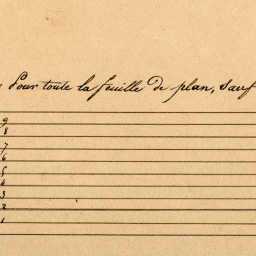 Pour toute la feuille De plan, Sauf
9
8
7
6
5
4
3
2
1